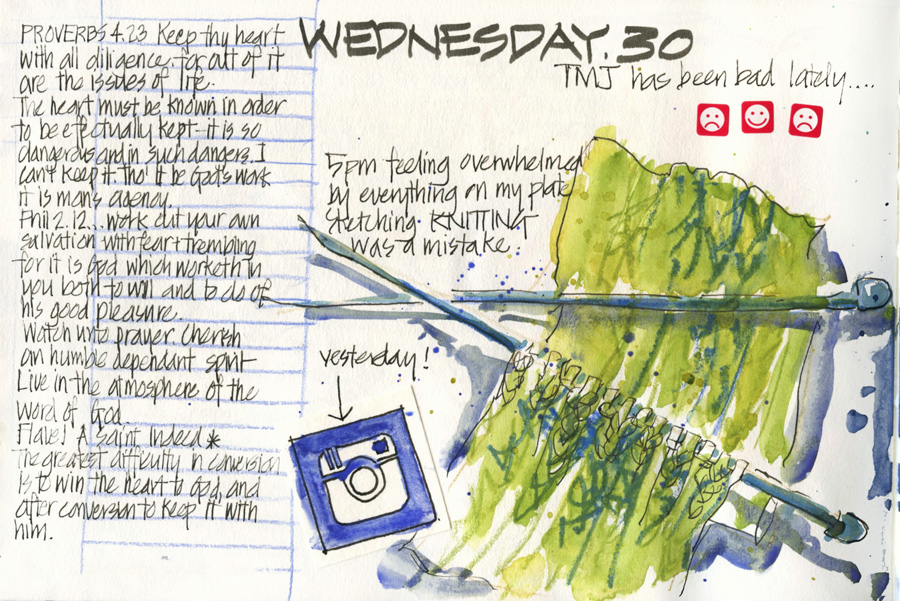 PROVERBS 4.23 Keep thy heart
with all diligence for out of it
are the issues of life.
The heart must be known in order
to be effectually kept - it is so
dangerous and in such dangers. I
can't keep it. Tho' it be God's work
it is man's agency.
Phil 2.12... work out your own
salvation with fear + trembling
for it is God which worketh in
you both to will and to do of
his good pleasure.
Watch unto prayer. Cherish
an humble dependant spirit
Live in the atmosphere of the
word of God.
Flavel A Saint Indeed *
The greatest difficulty in conversion
is to win the heart to God, and
after conversion to keep it with
him.
WEDNESDAY. 30
TMJ has been bad lately....
5pm feeling overwhelmed
by everything on my plate
sketching KNITTING
was a mistake.
yesterday!